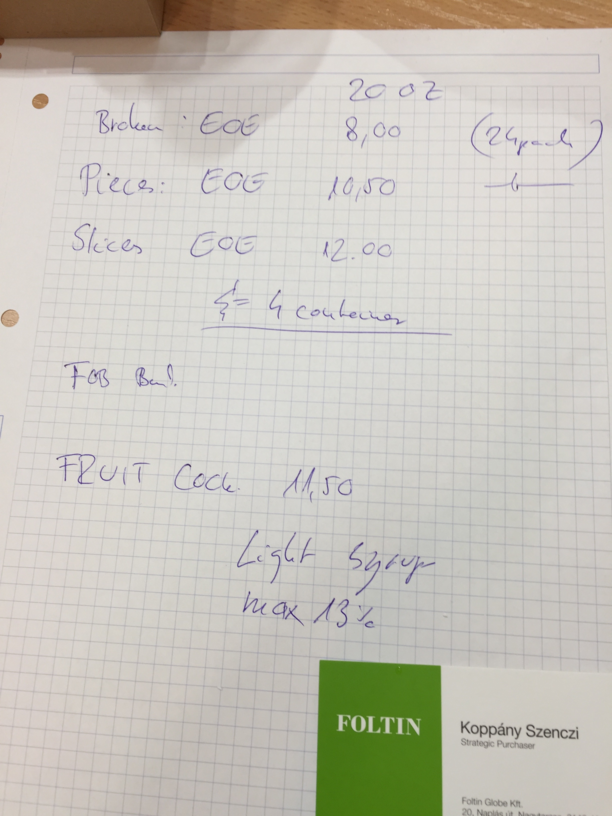 20 OZ
Broken: EOE 8,00 (24pack)
Pieces: EOE 10,50
Slices EOE 12.00
= 4 container
FOB
FRUIT Cock. 11,50
Light Syrup
max 13%
FOLTIN
Koppány Szenczi
Strategic Purchaser
Foltin Globe Kft.